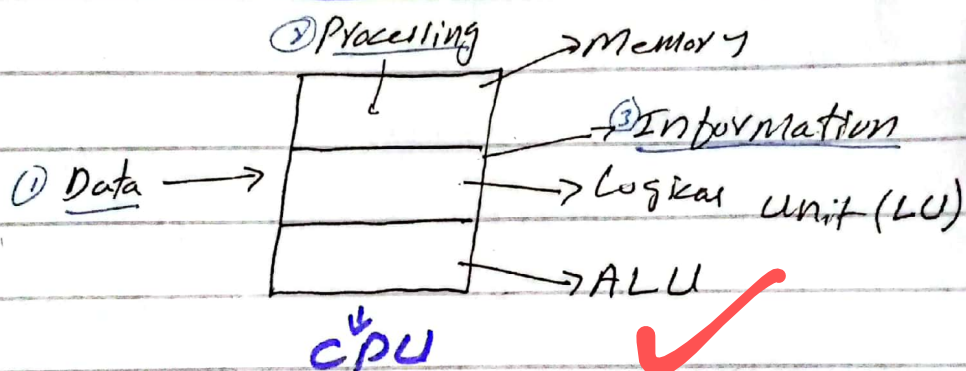 ② Processing
Memory
③ Information
① Data
Logical Unit (LU)
ALU
CPU